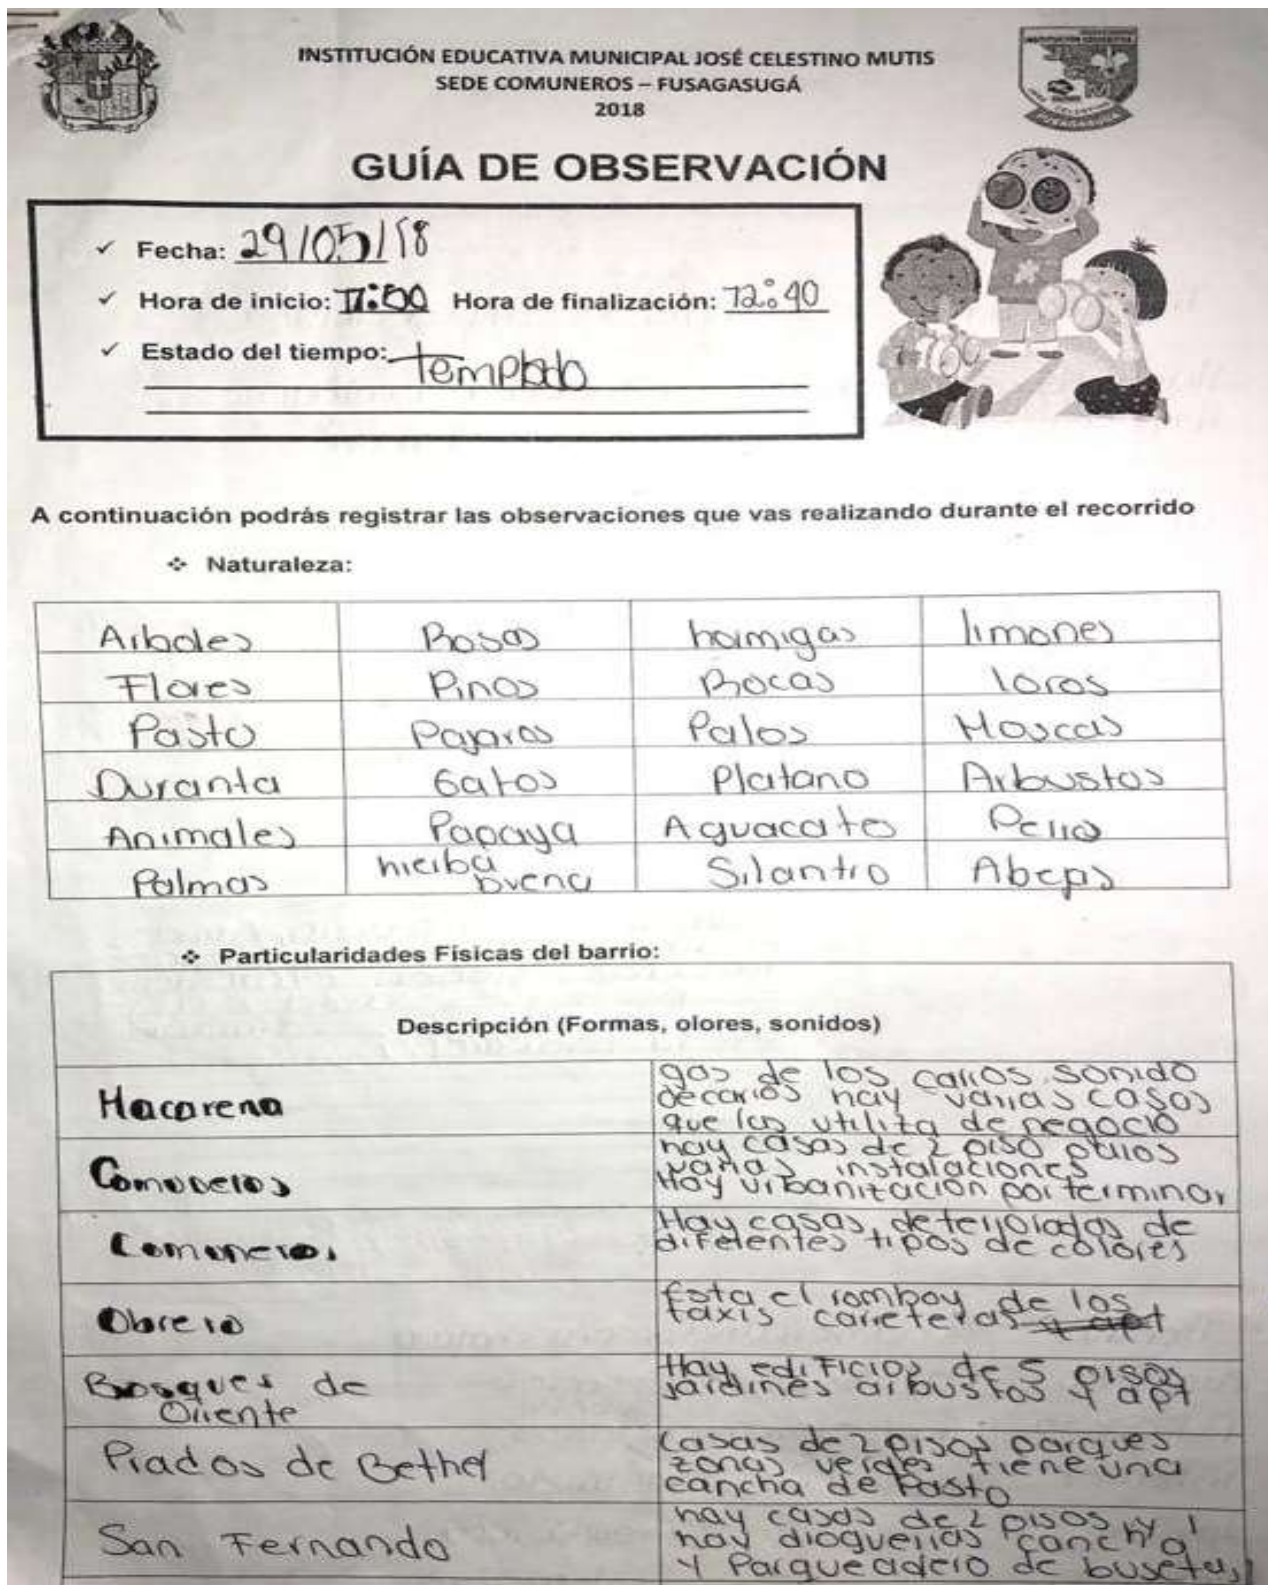 INSTITUCIÓN EDUCATIVA MUNICIPAL JOSÉ CELESTINO MUTIS
SEDE COMUNEROS – FUSAGASUGÁ
2018
GUÍA DE OBSERVACIÓN
✓ Fecha: 29/05/18
✓ Hora de inicio: Hora de finalización: 12:40
✓ Estado del tiempo: Templado
A continuación podrás registrar las observaciones que vas realizando durante el recorrido
❖ Naturaleza:
Arboles Rosas hormigas limones
Flores Pinos Rocas loros
Pasto Pajaros Palos Moscas
Duranta Gatos Platano Arbustos
Animales Papaya Aguacate Perro
Palmas hierba buena Silantro Abejas
❖ Particularidades Físicas del barrio:
Descripción (Formas, olores, sonidos)
Macarena
gas de los carros sonido
de carros hay varias casas
que las utiliza de negocio
Comuneros
hay casas de 2 piso
varias instalaciones
Hoy urbanización por terminar
Comuneros
Hay casas deterioradas de
diferentes tipos de colores
Obrero
Esta el romboy de los
taxis carreteras y apt
Bosques de
Oriente
Hay edificios de 5 pisos
jardines arbustos y apt
Prados de Bethel
Casas de 2 pisos parques
zonas verdes tiene una
cancha de Pasto
San Fernando
hay casas de 2 pisos y 1
hay droguerias cancha
y Parqueadero de busetas